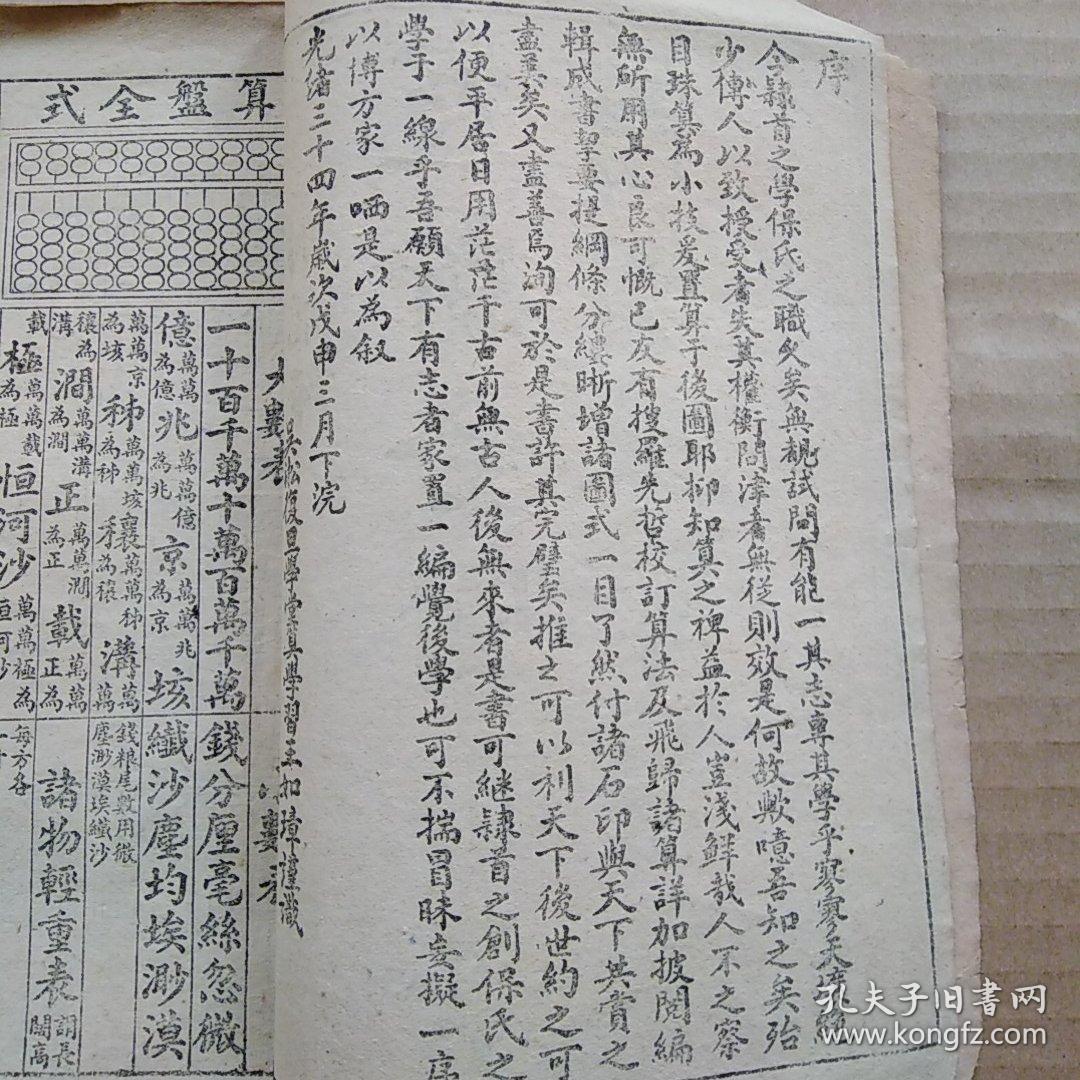 序
今隸首之學保氏之職久矣無覩試問有能一其志專其學乎寥寥天
少傳人以致授受者失其權衡問津者無從則效是何故歟噫吾知之矣殆
目珠算為小技爰置算子後圖耶抑知算之裨益於人豈淺鮮哉人不之察
無所用其心良可慨已友有搜羅先哲校訂算法及飛歸諸算詳加披閱編
輯成書挈要提綱條分縷晰增諸圖式一目了然付諸石印與天下共賞之
盡美矣又盡善焉洵可於是書許其完璧矣推之可以利天下後世約之可
以便平居日用茫茫千古前無古人後無來者是書可繼隸首之創保氏之
學于一線乎吾願天下有志者家置一編覺後學也可不揣冒昧妄擬一序
以博方家一哂是以為叙
光緒三十四年歲次戊申三月下浣
算盤全式
大數表
一十百千萬十萬百萬千萬
億萬萬為億兆萬萬億為兆京萬萬兆為京垓
萬萬京為垓秭萬萬垓為秭穰萬萬秭為穰溝萬萬
穰為溝澗萬萬溝為澗正萬萬澗為正載萬萬正為
載極萬萬載為極恒河沙萬萬極為恒河沙
小數表
錢分厘毫絲忽微
纖沙塵埃渺漠
錢粮尾數用微塵渺漠埃纖沙
諸物輕重表
每方各
孔夫子旧书网
www.kongfz.com